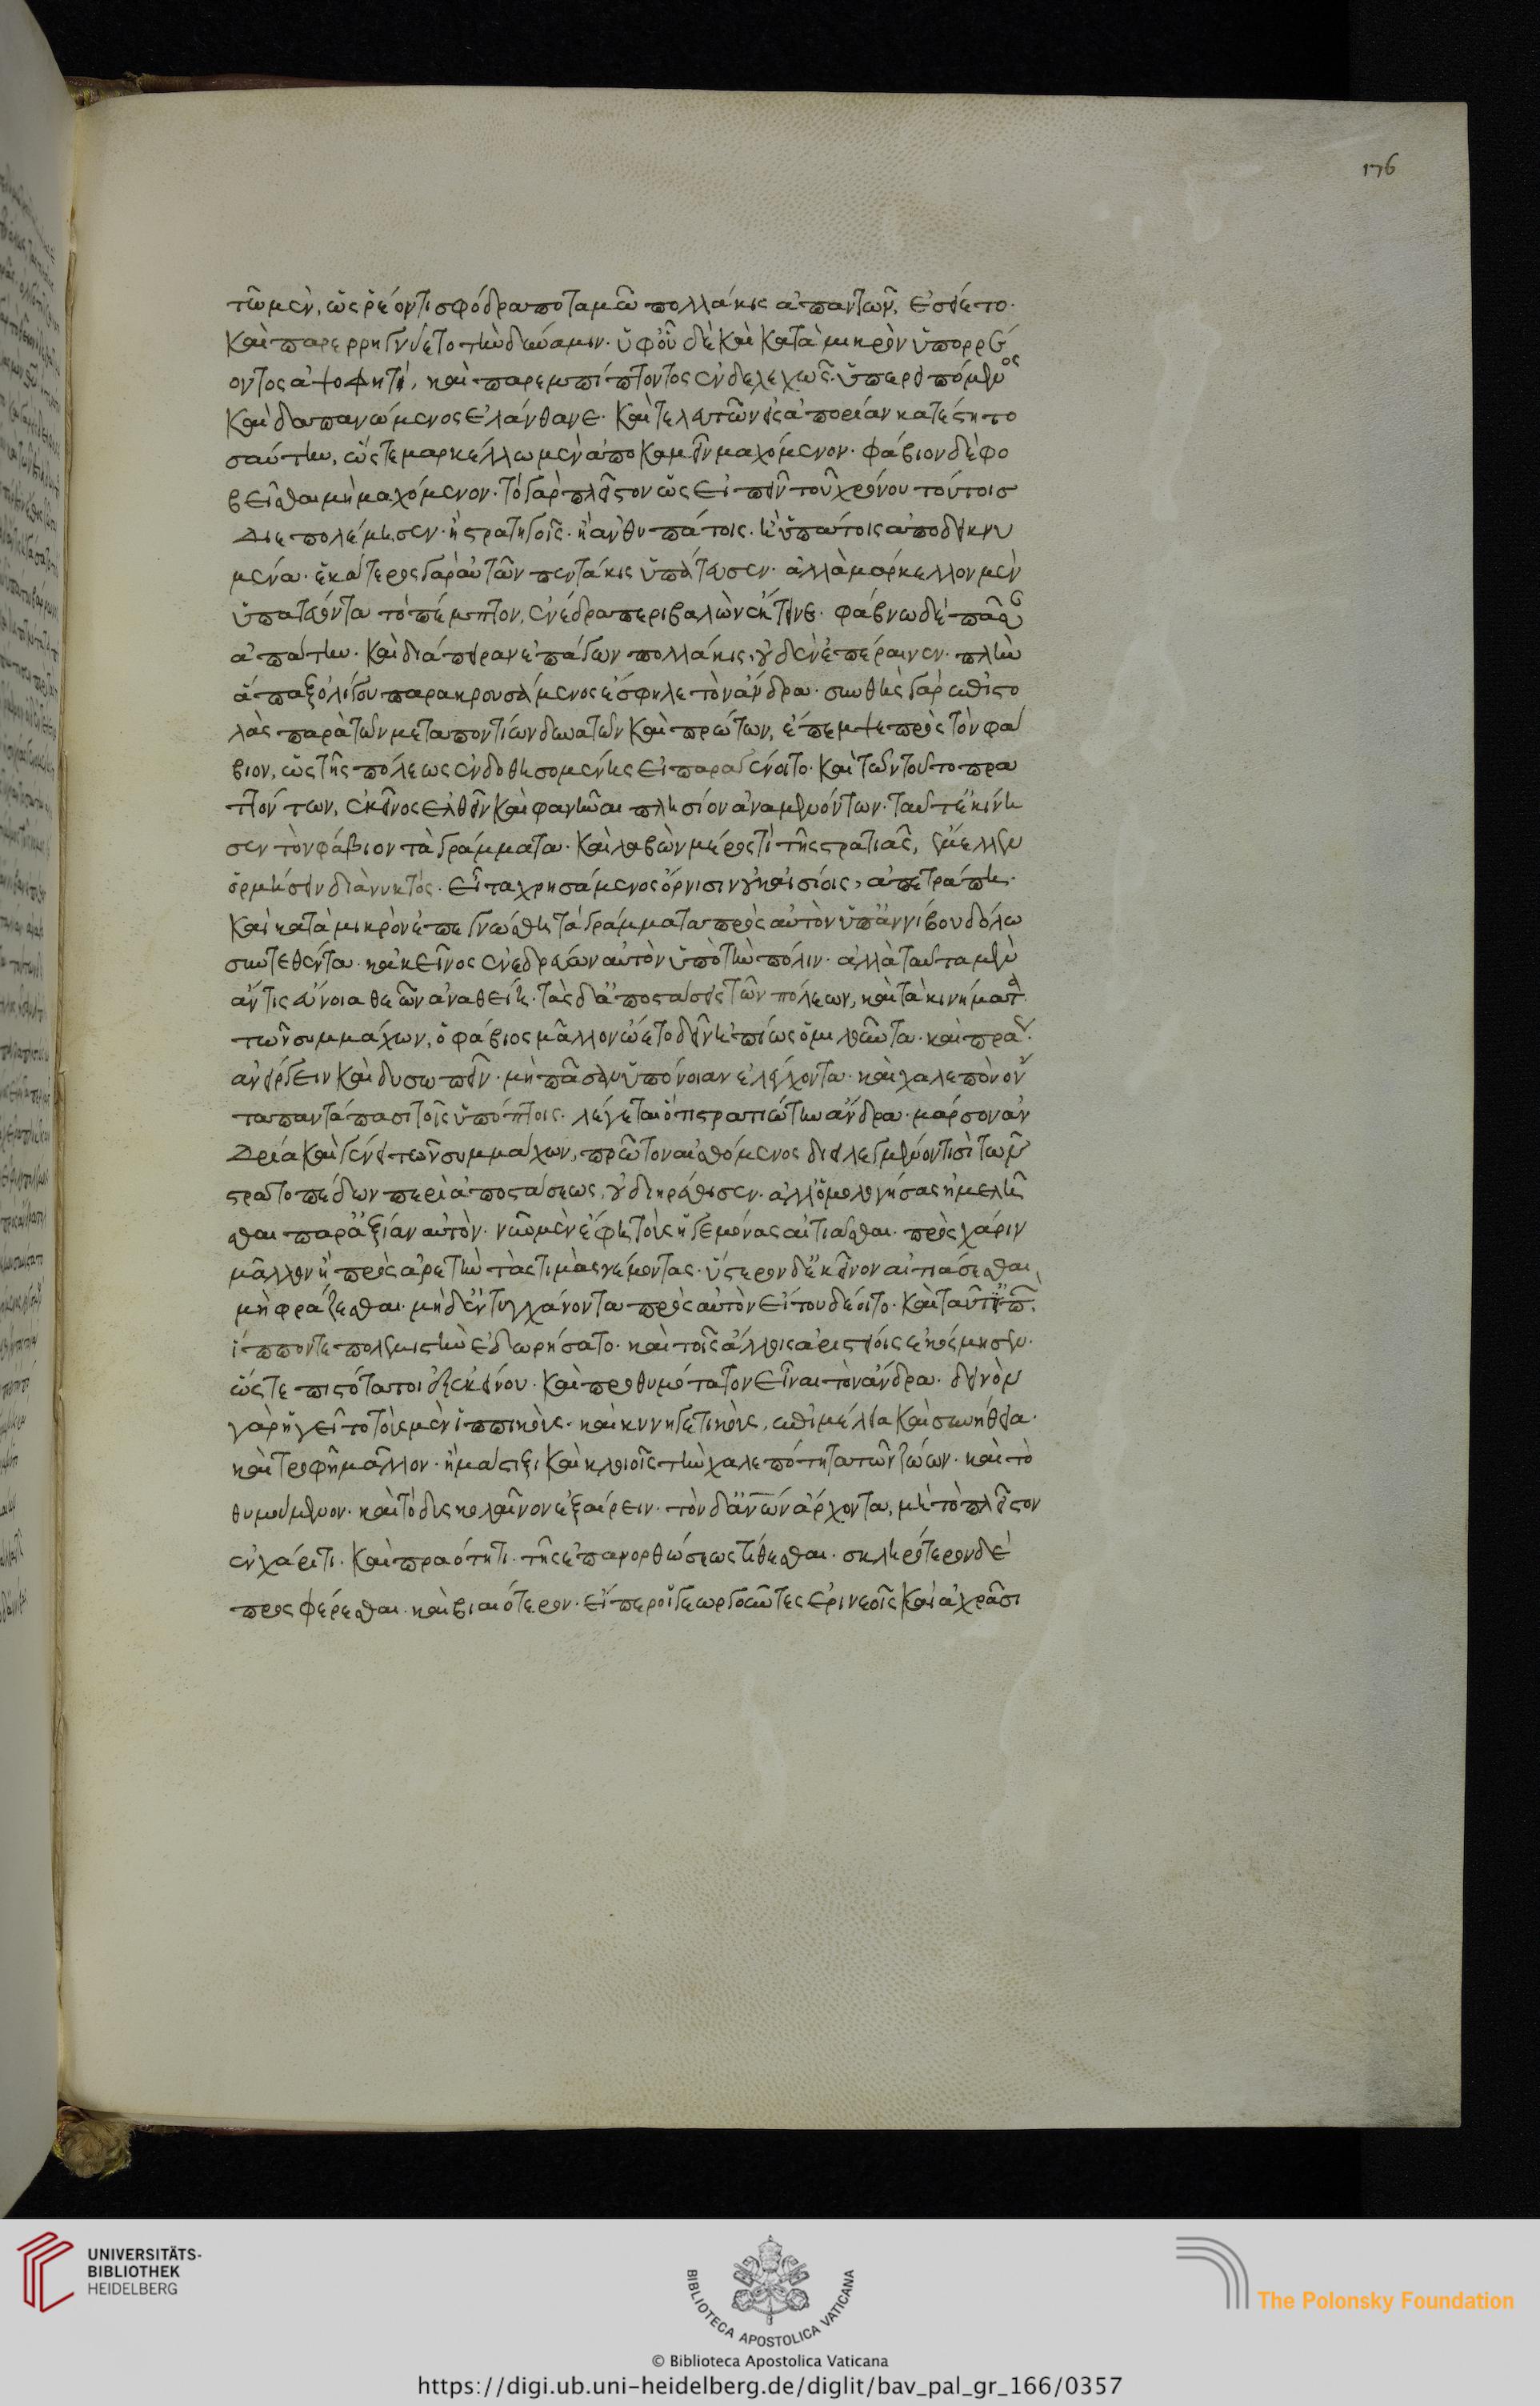 176
τῷ μὲν, ὡς ῥέοντι σφόδρα ποταμῷ πολλάκις ἀπαντῶν, ἐσείετο·
καὶ παρερρήγνυτο τὴν δύναμιν· ὑφ' οὗ δὲ καὶ κατὰ μικρὸν ὑπορρέ
οντος ἀψοφητὶ, καὶ παρεμπίπτοντος ἐνδελεχῶς· ὑπερειπόμενος
καὶ δαπανώμενος ἐλάνθανε· καὶ τελευτῶν εἰς ἀπορίαν κατέστη το
σαύτην, ὥστε μαρκέλλω μὲν ἀποκαμεῖν μαχόμενον· φάβιον δὲ φο
βεῖσθαι μὴ μαχόμενον· τὸ γὰρ πλεῖστον ὡς εἰπεῖν τοῦ χρόνου τούτοισ
διεπολέμησεν· ἢ στρατηγοῖς· ἢ ἀνθυπάτοις· ἢ ὑπάτοις ἀποδεικνυ
μένοι· ἑκάτερος γὰρ αὐτῶν πεντάκις ὑπάτευσεν· ἀλλὰ μάρκελλον μὲν
ὑπατεύοντα τὸ πέμπτον, ἐνέδρα περιβαλὼν ἔκτεινε· φαβίω δὲ πᾶσαν
ἀπάτην· καὶ διάπειραν ἐπάγων πολλάκις, οὐδὲν ἐπέραινεν· πλὴν
ἅπαξ ὀλίγου παρακρουσάμενος ἔσφηλε τὸν ἄνδρα· συνθεὶς γὰρ ἐπιστο
λὰς παρὰ τῶν μεταποντίων δυνατῶν καὶ πρώτων, ἔπεμψε πρὸς τὸν φά
βιον, ὡς τῆς πόλεως ἐνδοθησομένης εἰ παραγένοιτο· καὶ τῶν τοῦτο πρα
ττόντων, ἐκεῖνος ἐλθεῖν καὶ φανῆναι πλησίον ἀναμενόντων· ταῦτ' ἐκίνη
σεν τὸν φάβιον τὰ γράμματα· καὶ λαβὼν μέρος τι τῆς στρατιᾶς, ἔμελλεν
ὁρμήσειν διὰ νυκτός· εἶτα χρησάμενος ὄρνισιν οὐκ αἰσίοις, ἀπετράπη·
καὶ κατὰ μικρὸν ἐπεγνώσθη τὰ γράμματα πρὸς αὐτὸν ὑπ' ἀννίβου δόλω
συντεθέντα· κἀκεῖνος ἐνεδρεύων αὐτὸν ὑπὸ τὴν πόλιν· ἀλλὰ ταῦτα μὲν
ἄν τις εὐνοία θεῶν ἀναθείη· τὰς δ' ἀποστάσεις τῶν πόλεων, καὶ τὰ κινήματα
τῶν συμμάχων, ὁ φάβιος μᾶλλον ὤετο δεῖν ἠπίως ὁμιλοῦντα· καὶ πράως
ἀνείργειν καὶ δυσωπεῖν· μὴ πᾶσαν ὑπόνοιαν ἐλέγχοντα· καὶ χαλεπὸν ὄν
τα παντάπασι τοῖς ὑπόπτοις· λέγεται ὅτι στρατιώτην ἄνδρα· μάρσον ἀν
δρεία καὶ γένει τῶν συμμάχων, πρῶτον αἰσθόμενος διειλεγμένον τισὶ τῶν
στρατοπέδων περὶ ἀποστάσεως, οὐ διηρέθισεν· ἀλλ' ὁμολογήσας ἠμελῆ
σθαι παρ' ἀξίαν αὐτὸν· νῦν μὲν ἔφη τοὺς ἡγεμόνας αἰτιᾶσθαι· πρὸς χάριν
μᾶλλον ἢ πρὸς ἀρετὴν τὰς τιμὰς νέμοντας· ὕστερον δ' ἐκεῖνον αἰτιάσεσθαι,
μὴ φράζεσθαι· μηδ' ἐντυγχάνοντα πρὸς αὐτὸν εἴ του δέοιτο· καὶ ταῦτ' εἰπὼν
ἵππον τε πολεμιστὴν ἐδωρήσατο· καὶ τοῖς ἄλλοις ἀριστείοις ἐκόσμησεν·
ὥστε πιστότατον ἐξ ἐκείνου· καὶ προθυμότατον εἶναι τὸν ἄνδρα· δεινὸν
γὰρ ἡγεῖτο τοὺς μὲν ἱππικοὺς· καὶ κυνηγετικοὺς, ἐπιμελεία καὶ συνηθεία·
καὶ τροφῆ μᾶλλον· ἢ μάστιξι καὶ κλοιοῖς τὴν χαλεπότητα τῶν ζώων· καὶ τὸ
θυμούμενον· καὶ τὸ δυσκολαῖνον ἐξαίρειν· τὸν δ' ἀνων ἄρχοντα, μὴ τὸ πλεῖστον
ἐν χάριτι· καὶ πραότητι· τῆς ἐπανορθώσεως τίθεσθαι· σκληρότερον δὲ
προσφέρεσθαι· καὶ βιαιότερον· εἴπερ οἱ γεωργοῦντες ἐρινεοῖς καὶ ἀχράσι
UNIVERSITÄTS-
BIBLIOTHEK
HEIDELBERG
BIBLIOTECA APOSTOLICA VATICANA
The Polonsky Foundation
© Biblioteca Apostolica Vaticana
https://digi.ub.uni-heidelberg.de/diglit/bav_pal_gr_166/0357